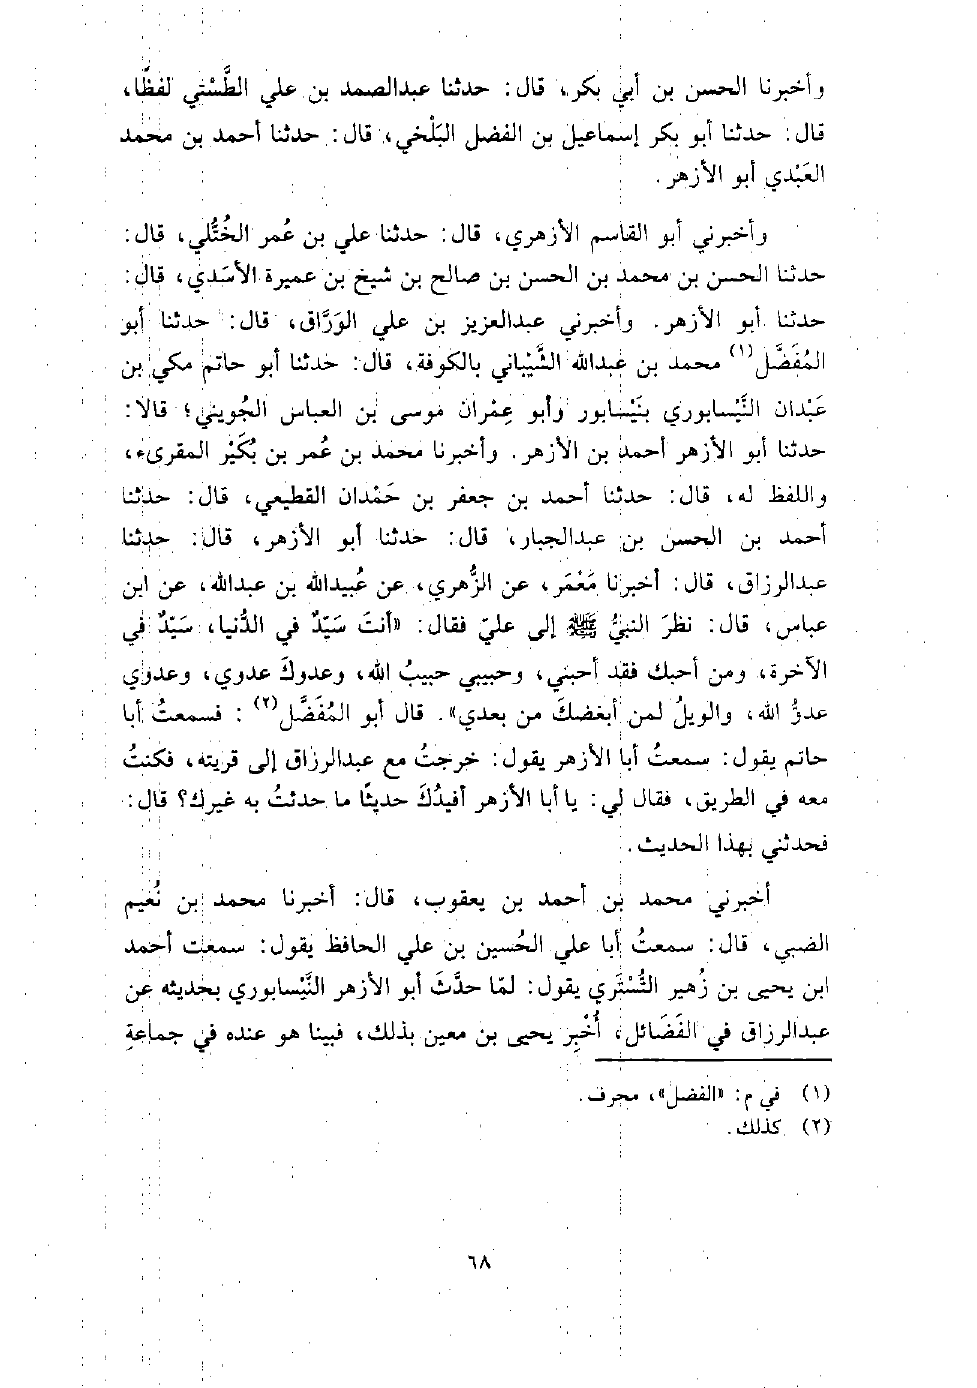 وأخبرنا الحسن بن أبي بكر، قال: حدثنا عبدالصمد بن علي الطَّسْتي لفظًا،
قال: حدثنا أبو بكر إسماعيل بن الفضل البَلْخي، قال: حدثنا أحمد بن محمد
العَبْدي أبو الأزهر.
وأخبرني أبو القاسم الأزهري، قال: حدثنا علي بن عُمر الخُتُّلي، قال:
حدثنا الحسن بن محمد بن الحسن بن صالح بن شيخ بن عميرة الأسَدي، قال:
حدثنا أبو الأزهر. وأخبرني عبدالعزيز بن علي الوَرَّاق، قال: حدثنا أبو
المُفَضَّل(١) محمد بن عبدالله الشَّيْباني بالكوفة، قال: حدثنا أبو حاتم مكي بن
عَبْدان النَّيْسابوري بنَيْسابور وأبو عِمْران موسى بن العباس الجُويني؛ قالا:
حدثنا أبو الأزهر أحمد بن الأزهر. وأخبرنا محمد بن عُمر بن بُكَيْر المقرىء،
واللفظ له، قال: حدثنا أحمد بن جعفر بن حَمْدان القطيعي، قال: حدثنا
أحمد بن الحسن بن عبدالجبار، قال: حدثنا أبو الأزهر، قال: حدثنا
عبدالرزاق، قال: أخبرنا مَعْمَر، عن الزُّهري، عن عُبيدالله بن عبدالله، عن ابن
عباس، قال: نظرَ النبيُّ ﷺ إلى عليّ فقال: «أنتَ سَيّدٌ في الدُّنيا، سَيّدٌ في
الآخرة، ومن أحبك فقد أحبني، وحبيبي حبيبُ الله، وعدوكَ عدوي، وعدوي
عدوُّ الله، والويلُ لمن أبغضكَ من بعدي». قال أبو المُفَضَّل(٢) : فسمعتُ أبا
حاتم يقول: سمعتُ أبا الأزهر يقول: خرجتُ مع عبدالرزاق إلى قريته، فكنتُ
معه في الطريق، فقال لي: يا أبا الأزهر أفيدُكَ حديثًا ما حدثتُ به غيرك؟ قال:
فحدثني بهذا الحديث.
أخبرني محمد بن أحمد بن يعقوب، قال: أخبرنا محمد بن نُعيم
الضبي، قال: سمعتُ أبا علي الحُسين بن علي الحافظ يقول: سمعت أحمد
ابن يحيى بن زُهير التُّسْتَري يقول: لمّا حدَّثَ أبو الأزهر النَّيْسابوري بحديثه عن
عبدالرزاق في الفَضَائل، أُخْبِر يحيى بن معين بذلك، فبينا هو عنده في جماعةِ
(١) في م: «الفضل»، محرف.
(٢) كذلك.
٦٨